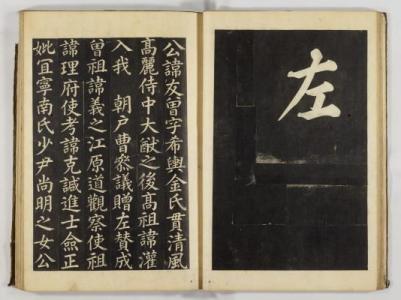 左
公諱友曽字希輿金氏貫清風
髙麗侍中大猷之後髙祖諱灌
入我　朝戶曹叅議贈左賛成
曽祖諱義之江原道觀察使祖
諱理府使考諱克諴進士僉正
妣冝寧南氏少尹尚明之女公